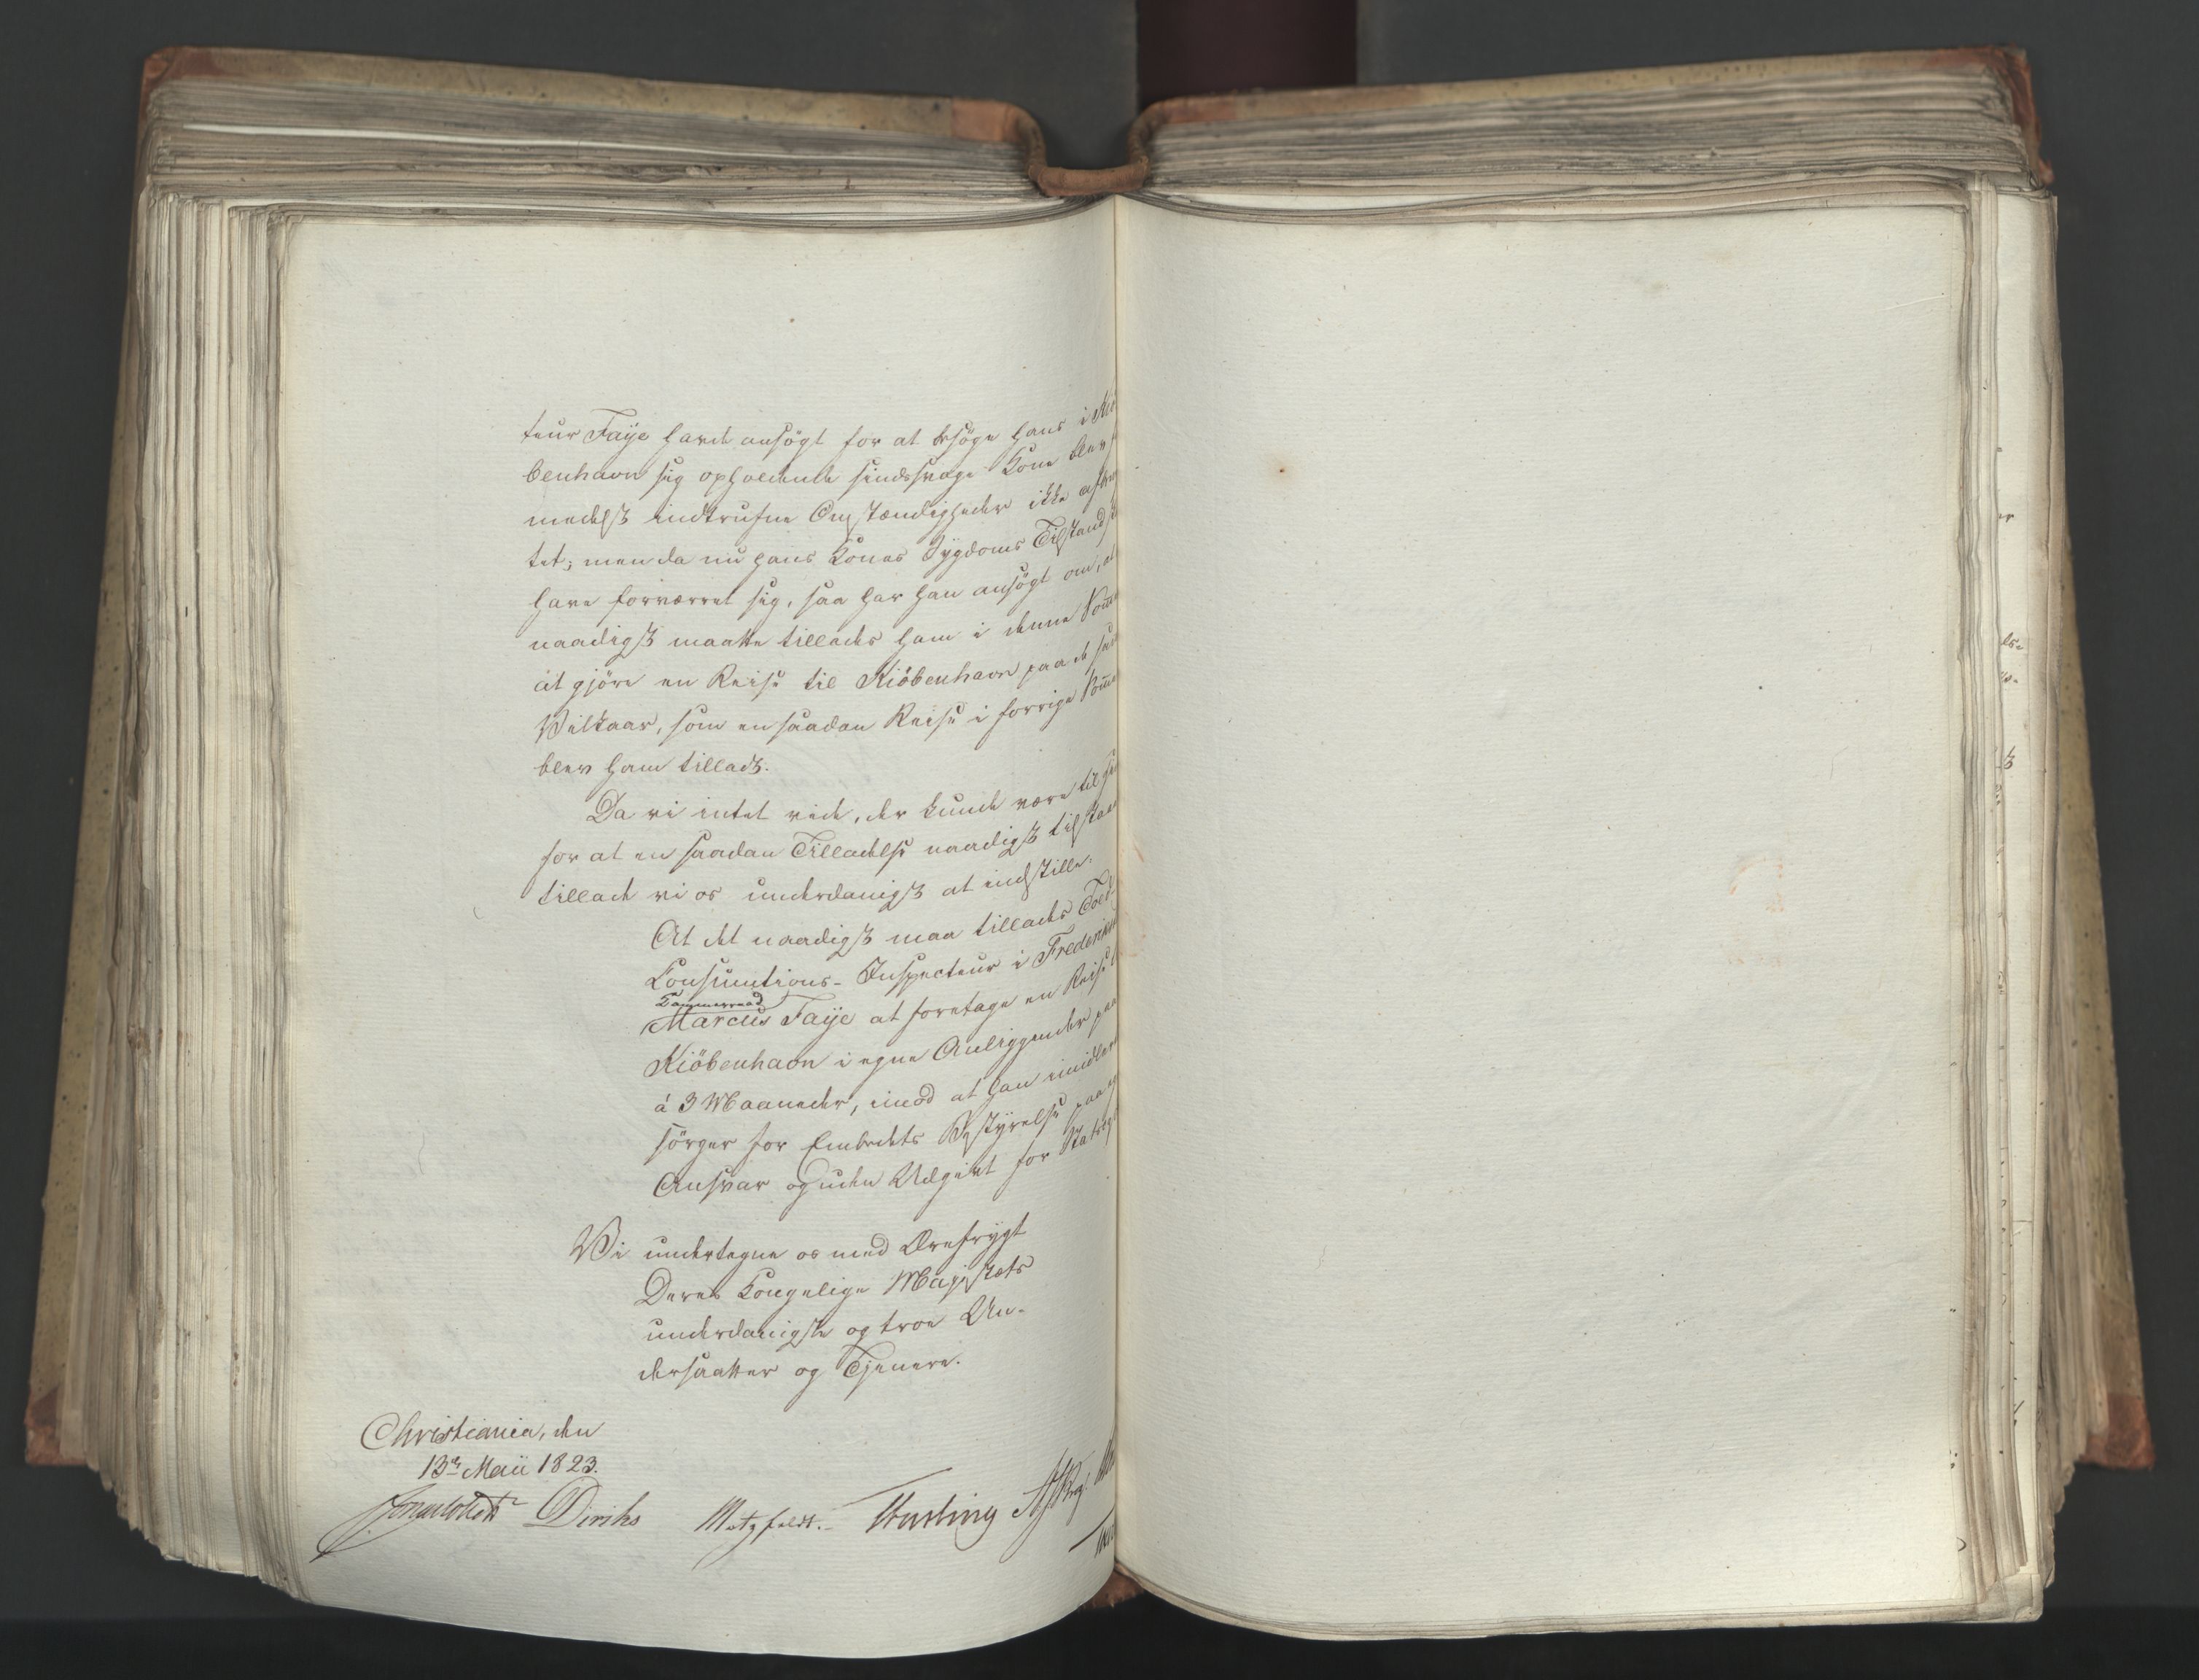 teur Faÿe havde ansögt for at besöge hans i Kiö
benhavn sig opholdende sindssvage Kone blev
medelst indtrufne Omstændigheder ikke afbe
tet; men da nu hans Kones Sÿgdoms Tilstand s
have forværret sig, saa har han ansögt om, at
naadigst maatte tillades ham i denne Som
at gjöre en Reise til Kiöbenhavn paa de sam
Vilkaar, som en saadan Reise i forrige Som
blev ham tilladt.
Da vi intet vide, der kunde være til
for at en saadan Tilladelse naadigst tilstaa
tillade vi os underdanigst at indstille:
At det naadigst maa tillades Told
Consumtions-Inspecteur i Frederiks
Kammerraad
Marcus Faÿe at foretage en Reise
Kiöbenhavn i egne Anliggender paa
à 3 Maaneder, imod at han imidler
sörger for Embedets Bestÿrelse paa
Ansvar og uden Udgivt for Stats
Vi undertegne os med Ærefrÿgt
Deres Kongelige Majestæts
underdanigste og troe Un-
dersaatter og Tjenere.
Christiania, den
13de Maii 1823.
Sommerhielm Diriks Motzfeldt. Krag